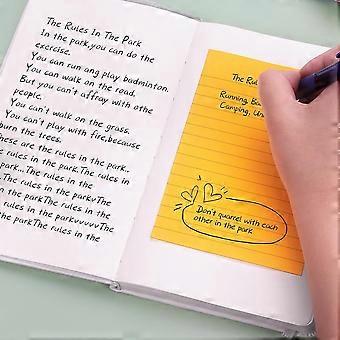 The Rules In The Park
In the park,you can do the
exercise.
You can run ang play badminton.
You can walk on the road.
But you can't affray with othe
people.
You can't walk on the grass.
You can't play with fire,because
burn the trees.
hese are the rules in the park..
e rules in the park.The rules in
park...The rules in the
The rules in the parkvThe
n the parkThe rules in the
rules in the parkvvvvvThe
the parkThe rules in the
The Rul
Running, Ba
Camping, Un
Don't quarrel with each
other in the park